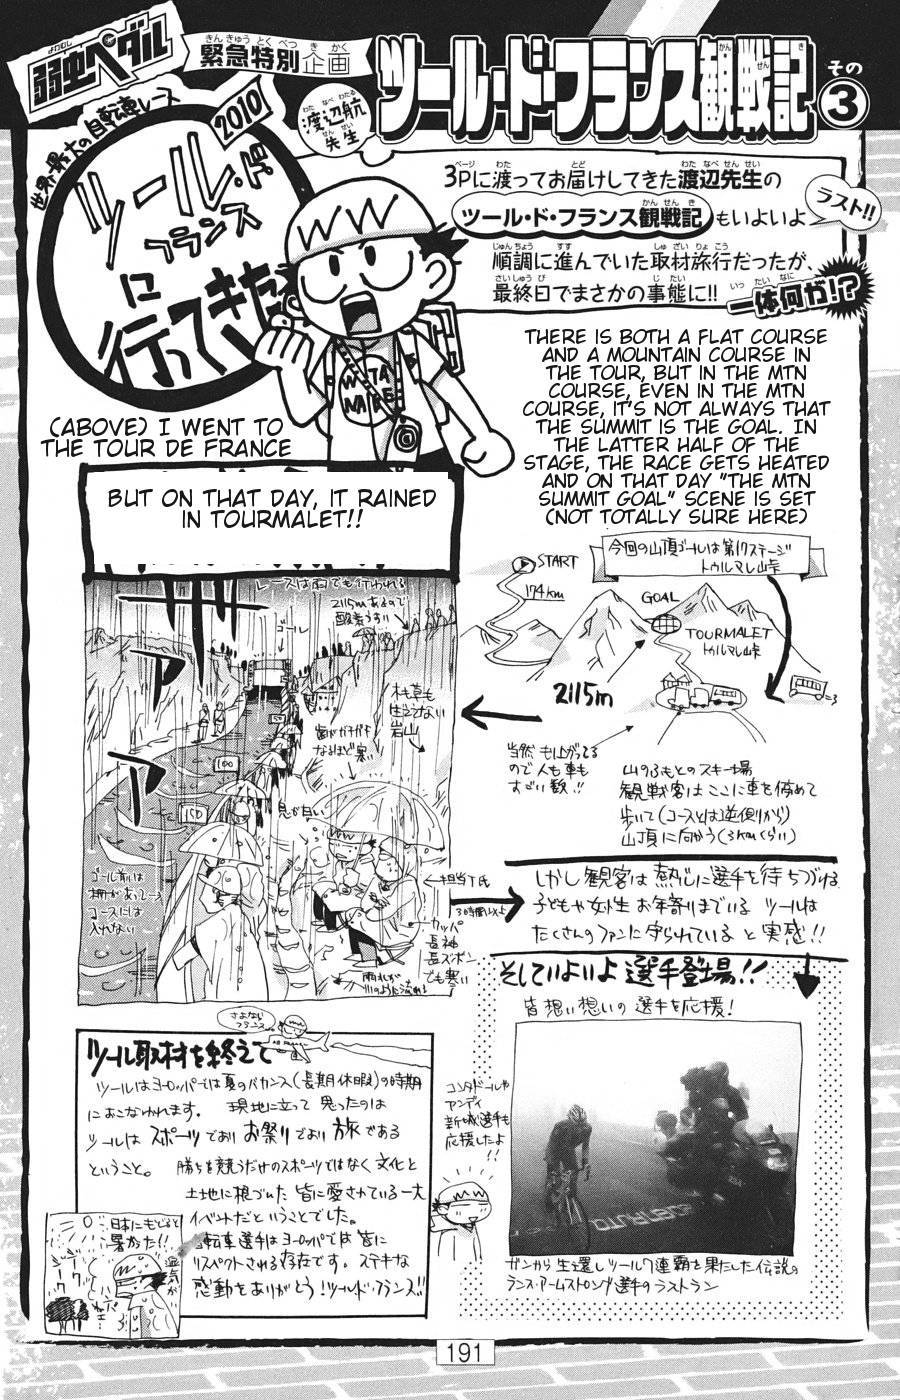 弱虫ペダル
緊急特別企画
渡辺航先生
ツール・ド・フランス観戦記 その3
世界最大の自転車レース
2010
ツール・ド
フランス
に
行ってきた
3Pに渡ってお届けしてきた渡辺先生の
ツール・ド・フランス観戦記もいよいよ
ラスト!!
順調に進んでいた取材旅行だったが、
最終日でまさかの事態に!!
一体何が!?
THERE IS BOTH A FLAT COURSE
AND A MOUNTAIN COURSE IN
THE TOUR, BUT IN THE MTN
COURSE, EVEN IN THE MTN
COURSE, IT'S NOT ALWAYS THAT
THE SUMMIT IS THE GOAL. IN
THE LATTER HALF OF THE
STAGE, THE RACE GETS HEATED
AND ON THAT DAY "THE MTN
SUMMIT GOAL" SCENE IS SET
(NOT TOTALLY SURE HERE)
(ABOVE) I WENT TO
THE TOUR DE FRANCE
BUT ON THAT DAY, IT RAINED
IN TOURMALET!!
今回の山頂ゴールは第17ステージ
トゥルマレ山峠
START
174km
GOAL
TOURMALET
トゥルマレ山峠
2115m
当然 も上がってる
ので人も車も
すごい数!!
山のふもとのスキー場
観戦客はここに車を停めて
歩いて(コースとは逆側から)
山頂に向かう(3kmくらい)
レースは雨でも行われる
2115mあるので
酸素うすい
ゴール
木も草も
生えてない
岩山
歯がガチガチ
なるほど寒い
息が白い
100
150
ゴール前は
柵があって
コースには
入れない
担当T氏
3時間以上
カッパ
長袖
長ズボン
でも寒い
雨水が
川のように流れる
しかし観客は熱心に選手を待ちつづける
子どもや女性 お年寄りまでいる ツールは
たくさんのファンに守られている と実感!!
そしていよいよ選手登場!!
皆想い想いの選手を応援!
コンタドールや
アンディ
新城選手も
応援したよ
ガンから生還しツール7連覇を果たした伝説の
ランス・アームストロング選手のラストラン
さよなら
フランス
ツール取材を終えて
ツールはヨーロッパでは夏のバカンス(長期休暇)の時期
におこなわれます。 現地に立って思ったのは
ツールはスポーツであり お祭りであり 旅である
ということ。 勝ちを競うだけのスポーツではなく文化と
土地に根づいた 皆に愛されている一大
イベントだということでした。
自転車選手はヨーロッパでは皆に
リスペクトされる存在です。ステキな
感動をありがとう!ツール・ド・フランス!!
日本にもどると
暑かった!!
湿気が
191